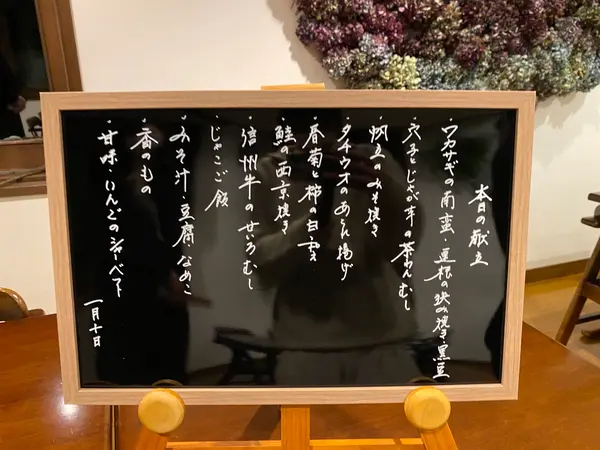 本日の献立
・ワカサギの南蛮・蓮根の挟み焼き・黒豆
・穴子とじゃが芋の茶わんむし
・帆立のみそ焼き
・タチウオのあられ揚げ
・春菊と柿の白和え
・鮭の西京焼き
・信州牛のせいろむし
・じゃこご飯
・みそ汁・豆腐、なめこ
・香のもの
・甘味・りんごのシャーベット
一月十日